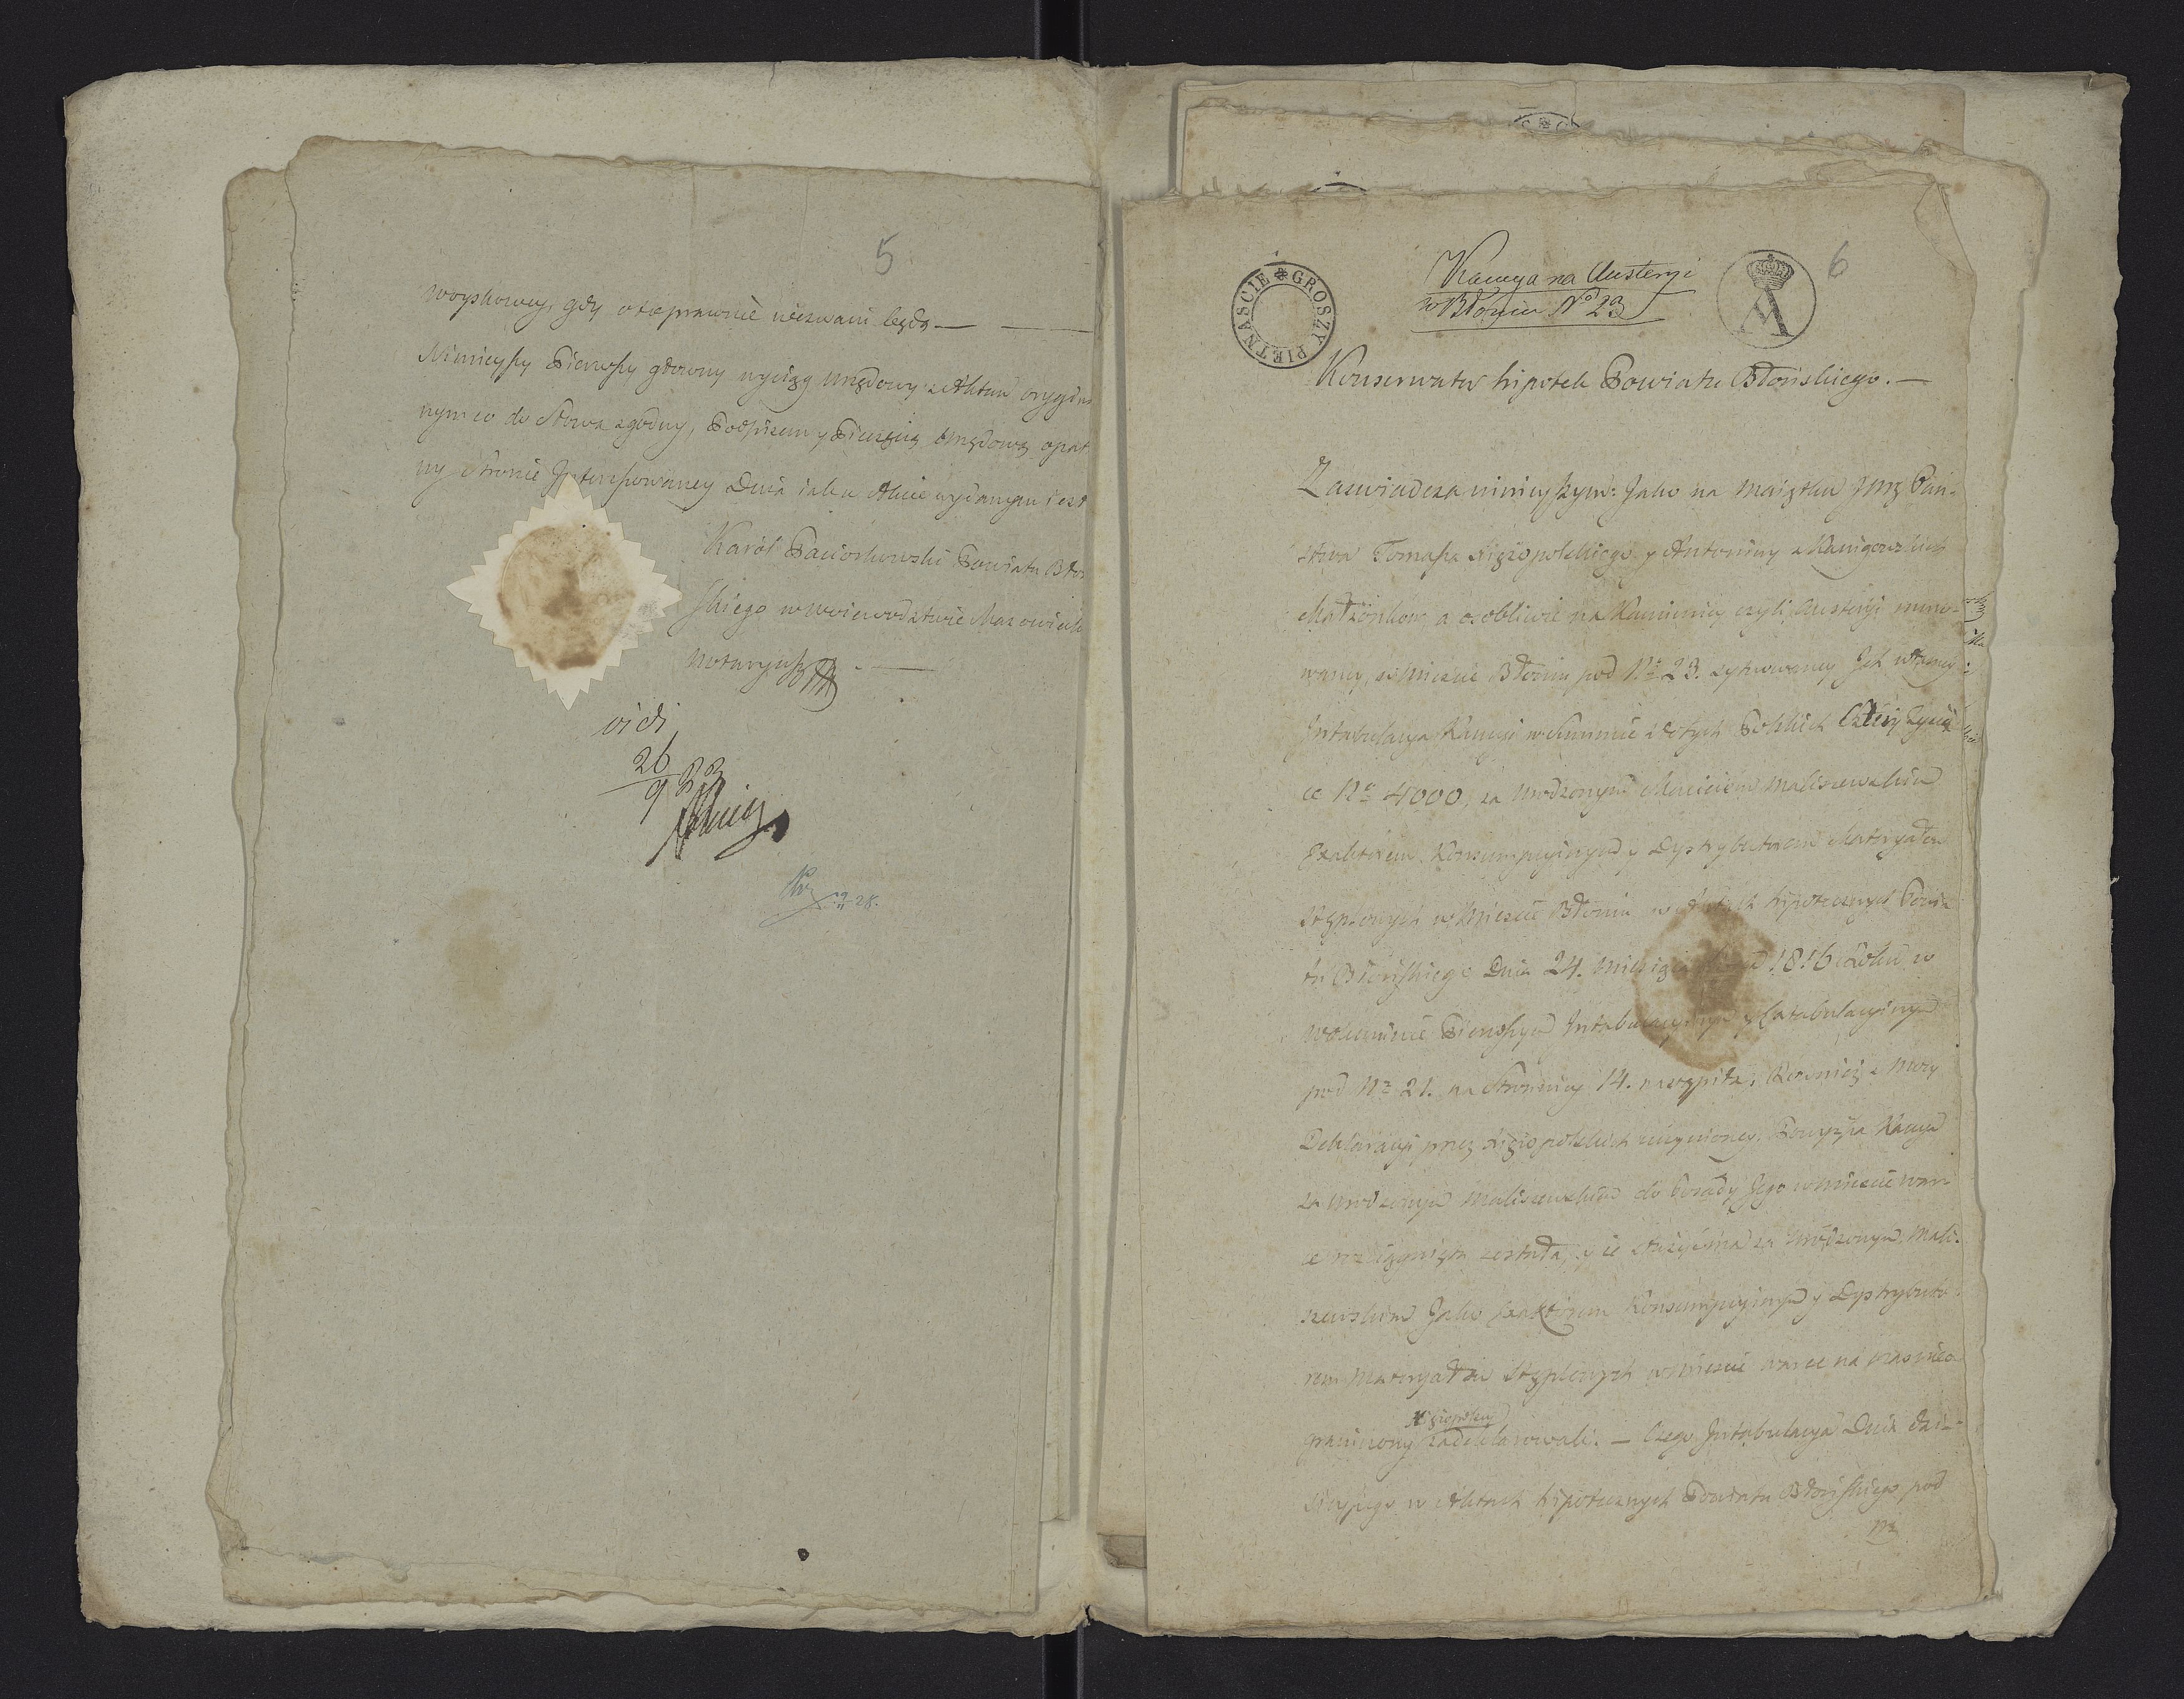 5
woyskowey, gdy o to prawnie wezwani będą —
Ninieyszy Pierwszy główny wyciąg Urzędowy z Aktem orygina
nym co do Słowa zgodny, Podpisem y Pieczęcią Urzędową opat
ny Stronie Interessowaney Dnia jak w Akcie wydanym iest
Karól Paciorkowski Powiatu Błoń
skiego w Woiewodztwie Mazowieck
Notaryusz
vidi
26
9 22
28.
6
GROSZY PIĘTNAŚCIE
Kaucya na Austeryi
w Błoniu No 23
Konserwator hipotek Powiatu Błońskiego. —
Zaswiadcza ninieyszym: Jako na maiątku JPP Pań-
stwa Tomasza y Antoniny z Kanigowskich
Małżonków, a osobliwie na Kamienicy czyli Austeryi muro-
waney, w Mieście Błoniu pod No 23. sytuowaney, Ich własney
Intabulacya Kaucyi w Summie złotych Polskich Cztery Tysią
ce No 4000, za Urodzonym Macieiem Maliszewskim
Exaktorem Konsumpcyinym y Dystrybutorem Materyałów
Stęplowych w Mieście Błoniu w Aktach hipotecznych Powia
tu Błońskiego Dnia 24. Miesiąca 1816 Roku w
Woluminie Pierwszym Intabulacyinym y Extabulacyinym
pod No 21. na Stronnicy 14. nastąpiła; Również z Mocy
Deklaracyi przez uczynioney, Powyższa Kaucya
za Urodzonym Maliszewskim do Posady Jego w Mieście War
ce rozciągnięta została, y że służyć ma za Urodzonym Mali-
szewskim Jako Exaktorem Konsumpcyinym y Dystrybuto-
rem Materyałów Stęplowych w Mieście Warce na czas nieo
graniczony zadeklarowali. — Czego Intabulacya Dnia dzi-
sieyszego w Aktach hipotecznych Powiatu Błońskiego pod
No